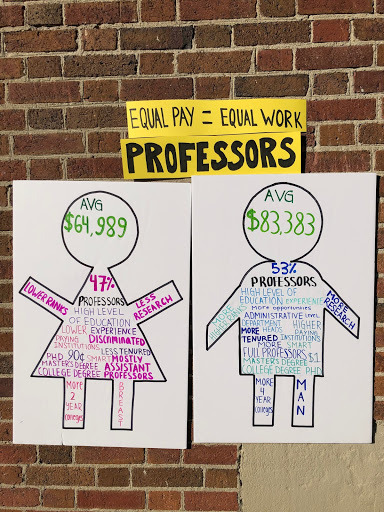 EQUAL PAY = EQUAL WORK
PROFESSORS
AVG
$64,989
47%
PROFESSORS
LOWER RANKS
LESS RESEARCH
HIGH LEVEL
OF EDUCATION
LOWER EXPERIENCE
PAYING DISCRIMINATED
INSTITUTIONS LESS TENURED
PHD 90¢ SMART MOSTLY
MASTERS DEGREE ASSISTANT
COLLEGE DEGREE PROFESSORS
More
2
YEAR
colleges
BREAST
AVG
$83,383
53%
PROFESSORS
MORE RESEARCH
HIGH LEVEL OF
EDUCATION EXPERIENCE
More opportunities
ADMINISTRATIVE level
DEPARTMENT HIGHER
MORE HEADS PAYING
TENURED INSTITUTIONS
MORE SMART
FULL PROFESSORS $1
MASTERS DEGREE
COLLEGE DEGREE PHD
MORE
4
YEAR
colleges
MAN